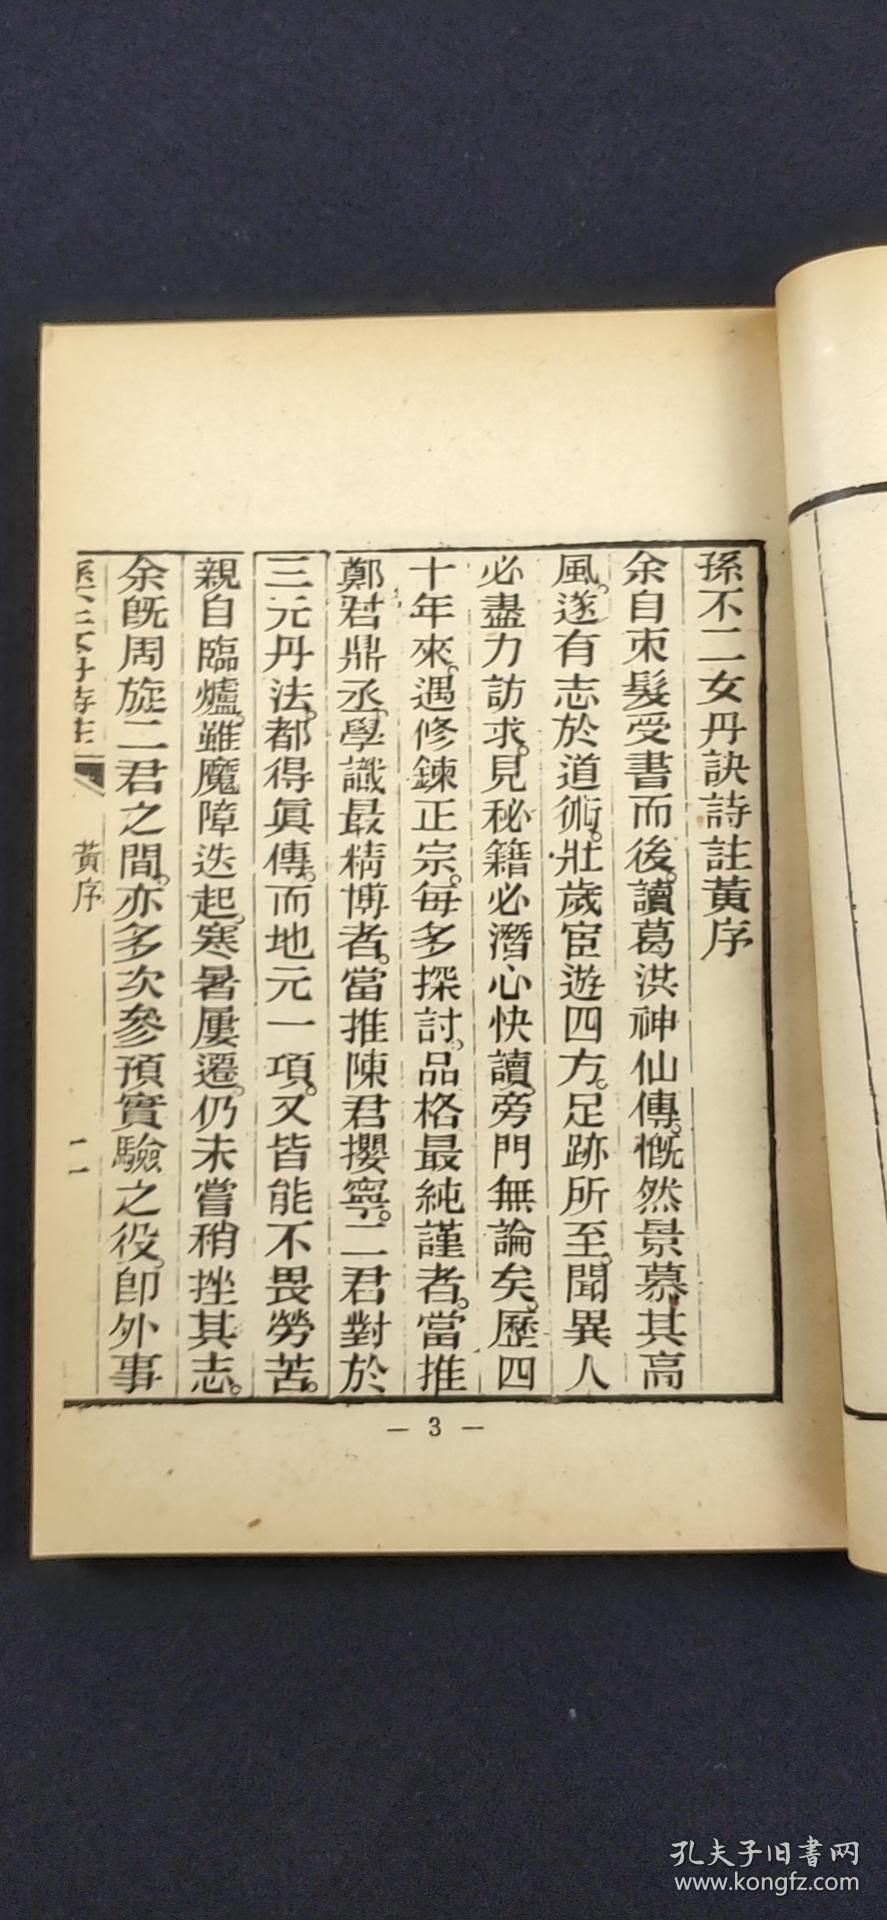 孫不二女丹訣詩註黃序
余自束髮受書而後。讀葛洪神仙傳。慨然景慕其高
風。遂有志於道術。壯歲宦遊四方。足跡所至。聞異人
必盡力訪求。見秘籍必潛心快讀。旁門無論矣。歷四
十年來。遇修鍊正宗。每多探討。品格最純謹者。當推
鄭君鼎丞。學識最精博者。當推陳君攖寧。二君對於
三元丹法。都得眞傳。而地元一項。又皆能不畏勞苦。
親自臨爐。雖魔障迭起。寒暑屢遷。仍未嘗稍挫其志。
余旣周旋二君之間。亦多次參預實驗之役。卽外事
孫不二女丹詩註
黃序
二
— 3 —
孔夫子旧書网
www.kongfz.com